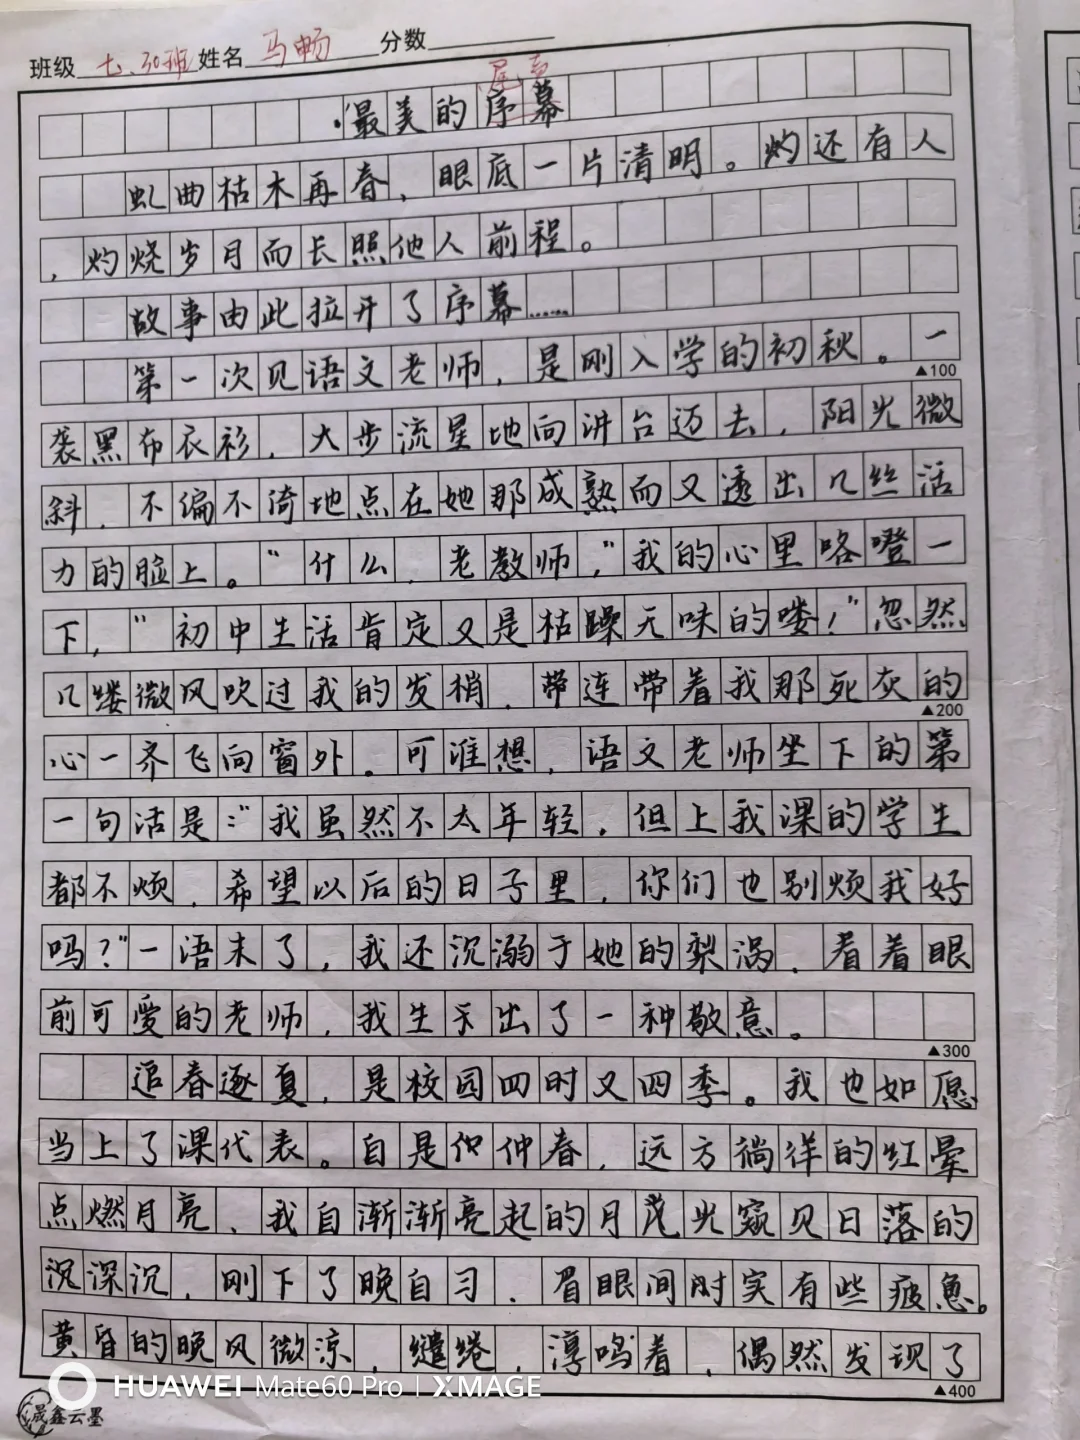 班级 七.30班 姓名 马畅 分数
尾声
·最美的序幕
虬曲枯木再春，眼底一片清明。灼还有人
，灼烧岁月而长照他人前程。
故事由此拉开了序幕……
第一次见语文老师，是刚入学的初秋。一
▲100
袭黑布衣衫，大步流星地向讲台迈去，阳光微
斜，不偏不倚地点在她那成熟而又透出几丝活
力的脸上。“什么，老教师，”我的心里咯噔一
下，“初中生活肯定又是枯躁无味的喽！”忽然
几缕微风吹过我的发梢，带连带着我那死灰的
▲200
心一齐飞向窗外。可谁想，语文老师坐下的第
一句活是：“我虽然不太年轻，但上我课的学生
都不烦，希望以后的日子里，你们也别烦我好
吗？”一语未了，我还沉溺于她的梨涡，看着眼
前可爱的老师，我生示出了一种敬意。
▲300
追春逐夏，是校园四时又四季。我也如愿
当上了课代表。自是仲仲春，远方徜徉的红晕
点燃月亮，我自渐渐亮起的月光窥见日落的
沉深沉，刚下了晚自习，眉眼间时实有些疲惫。
黄昏的晚风微凉，缱绻，淳鸣着，偶然发现了
▲400
HUAWEI Mate60 Pro | XMAGE
晟鑫云墨